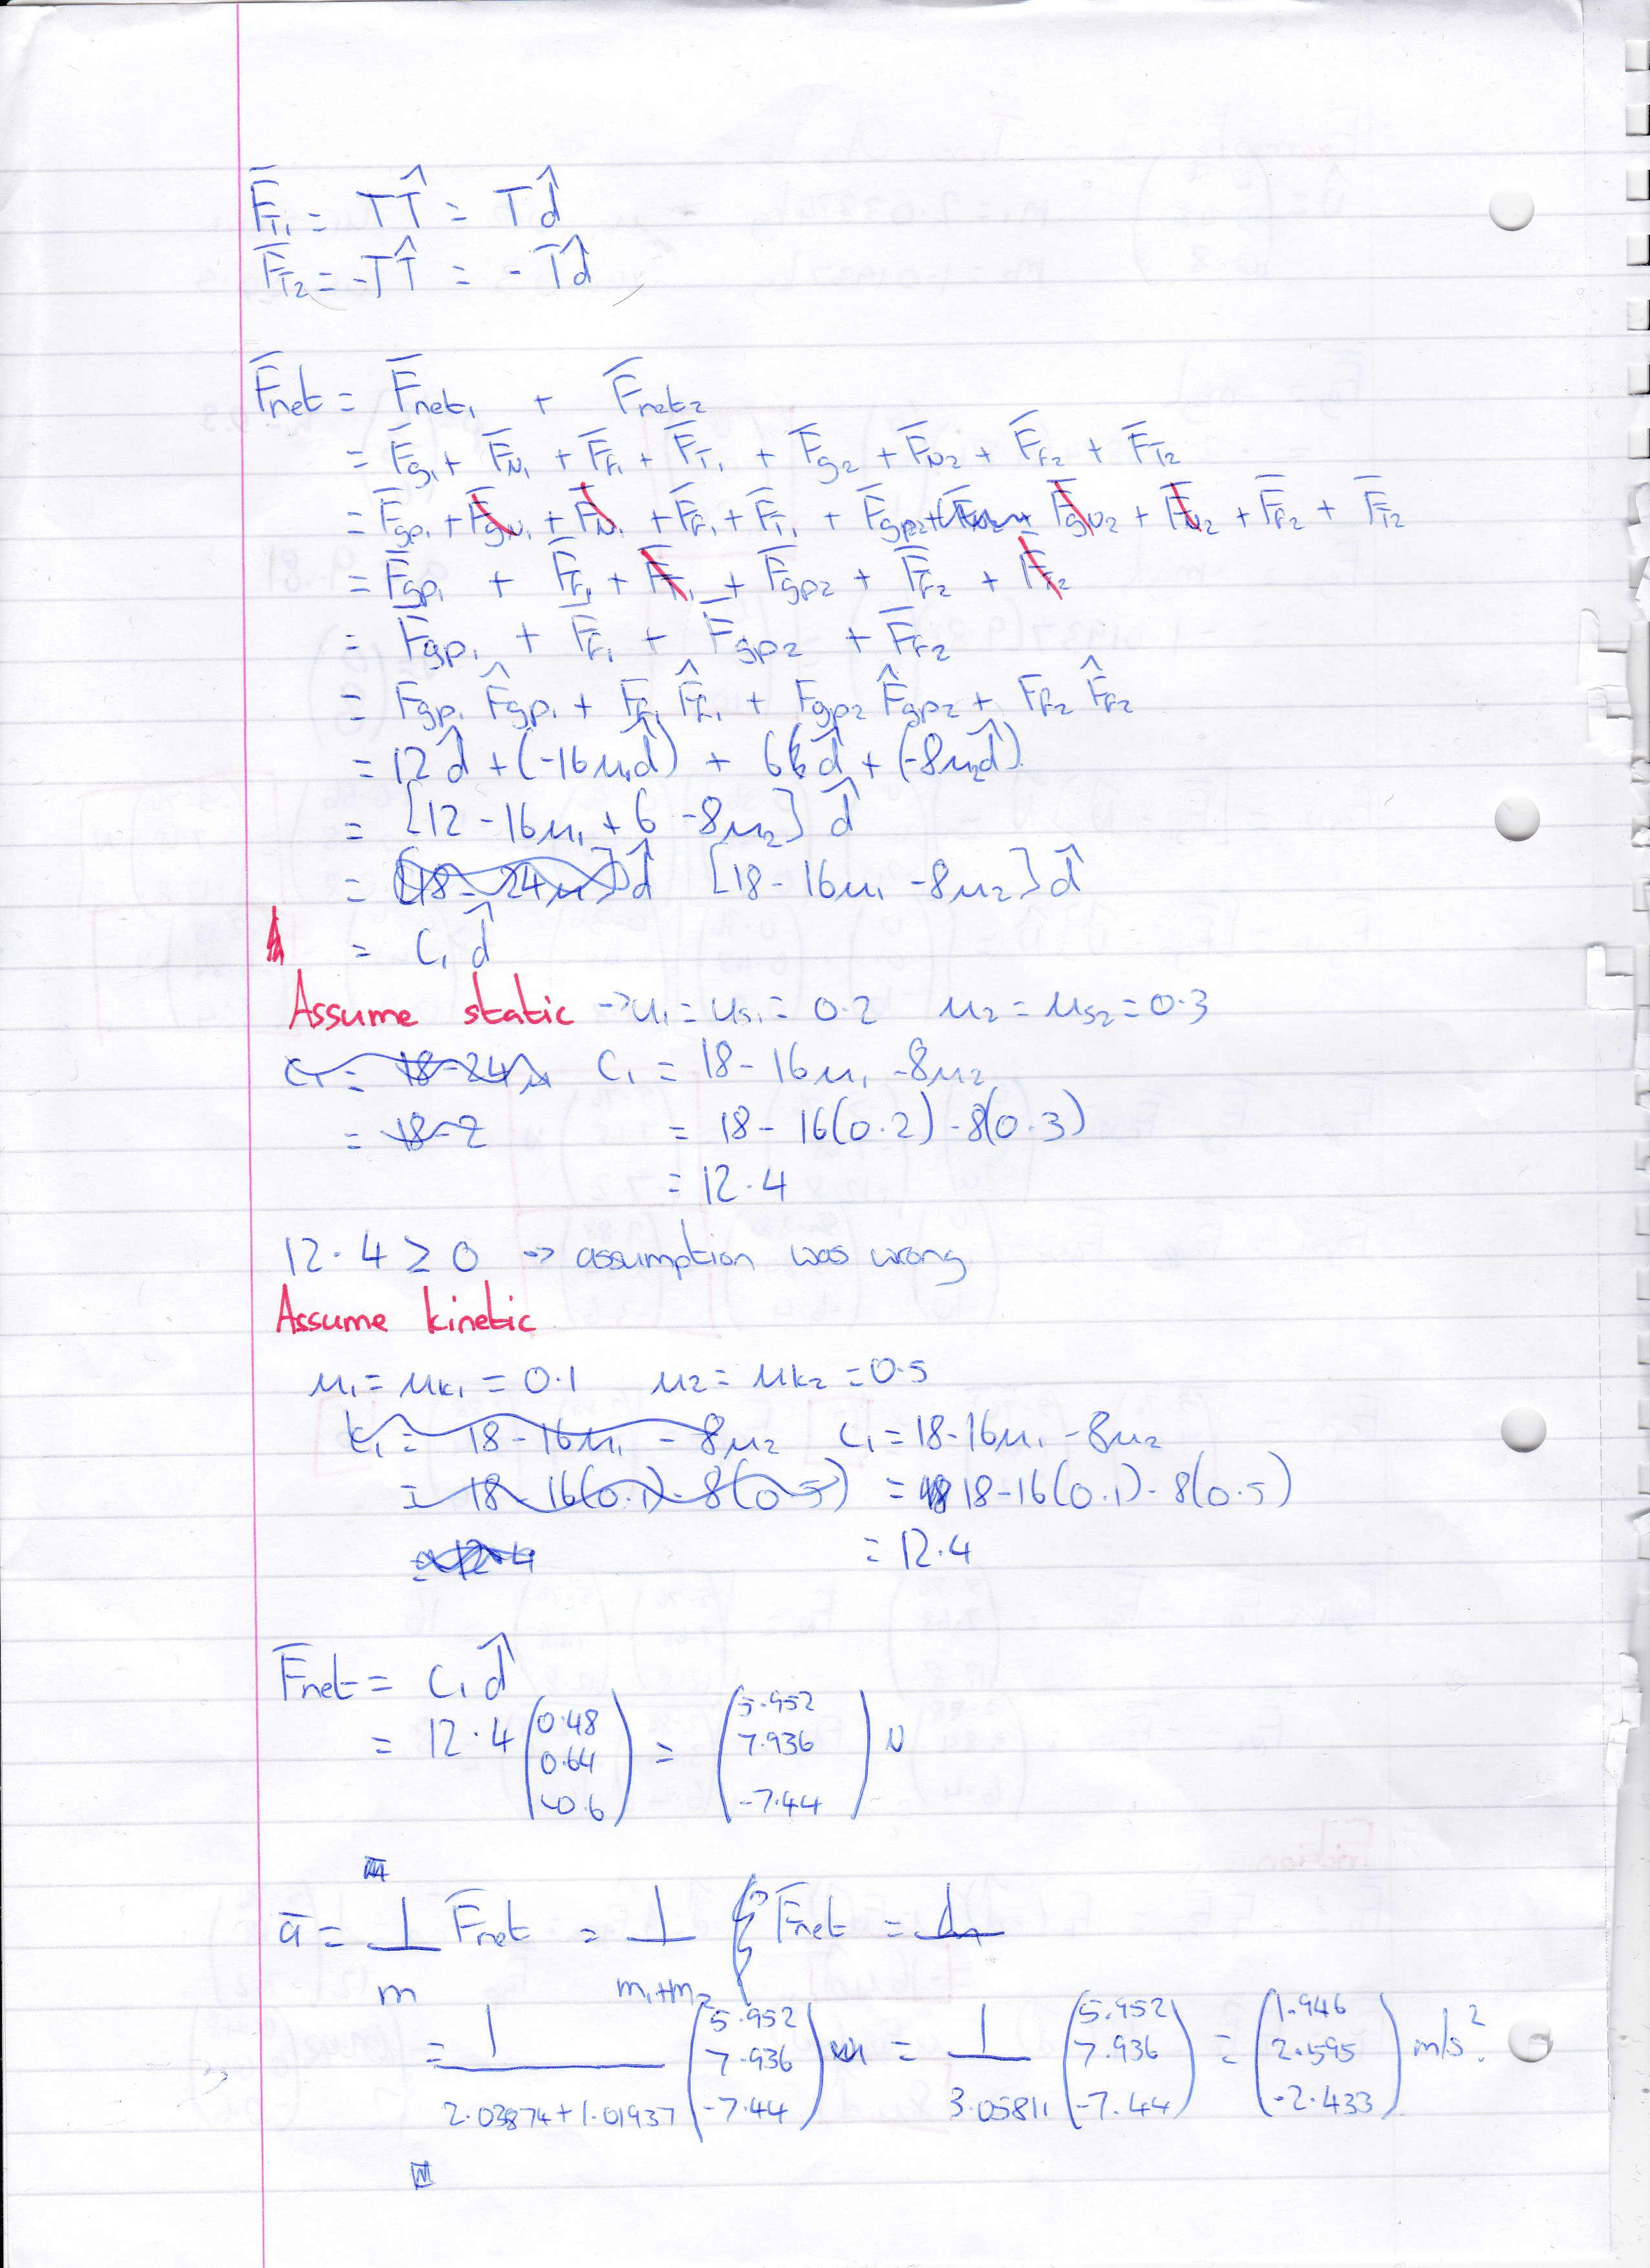 F̄_T₁ = T T̂ = T d̂
F̄_T₂ = -T T̂ = -T d̂
F̄net = F̄net₁ + F̄net₂
= F̄g₁ + F̄N₁ + F̄f₁ + F̄T₁ + F̄g₂ + F̄N₂ + F̄f₂ + F̄T₂
= F̄gp₁ + F̄gN₁ + F̄N₁ + F̄f₁ + F̄T₁ + F̄gp₂ + F̄gN₂ + F̄N₂ + F̄f₂ + F̄T₂
= F̄gp₁ + F̄f₁ + F̄T₁ + F̄gp₂ + F̄f₂ + F̄T₂
= F̄gp₁ + F̄f₁ + F̄gp₂ + F̄f₂
= Fgp₁ F̂gp₁ + Ff₁ F̂f₁ + Fgp₂ F̂gp₂ + Ff₂ F̂f₂
= 12 d̂ + (-16μ₁d̂) + 6 d̂ + (-8μ₂d̂)
= [12 - 16μ₁ + 6 - 8μ₂] d̂
= [18 - 24μ] d̂ [18 - 16μ₁ - 8μ₂] d̂
= C₁ d̂
Assume static → μ₁ = μs₁ = 0.2 μ₂ = μs₂ = 0.3
C₁ = 18 - 24μ C₁ = 18 - 16μ₁ - 8μ₂
= 18 - 2 = 18 - 16(0.2) - 8(0.3)
= 12.4
12.4 ≥ 0 → assumption was wrong
Assume kinetic
μ₁ = μk₁ = 0.1 μ₂ = μk₂ = 0.5
k₁ = 18 - 16μ₁ - 8μ₂ C₁ = 18 - 16μ₁ - 8μ₂
= 18 - 16(0.1) - 8(0.5) = 18 - 16(0.1) - 8(0.5)
= 12.4 = 12.4
F̄net = C₁ d̂
= 12.4 (0.48 0.64 -0.6) = (5.952 7.936 -7.44) N
ā = 1/m F̄net = 1/(m₁+m₂) F̄net =
= 1/(2.03874 + 1.01937) (5.952 7.936 -7.44) = 1/3.05811 (5.952 7.936 -7.44) = (1.946 2.595 -2.433) m/s².